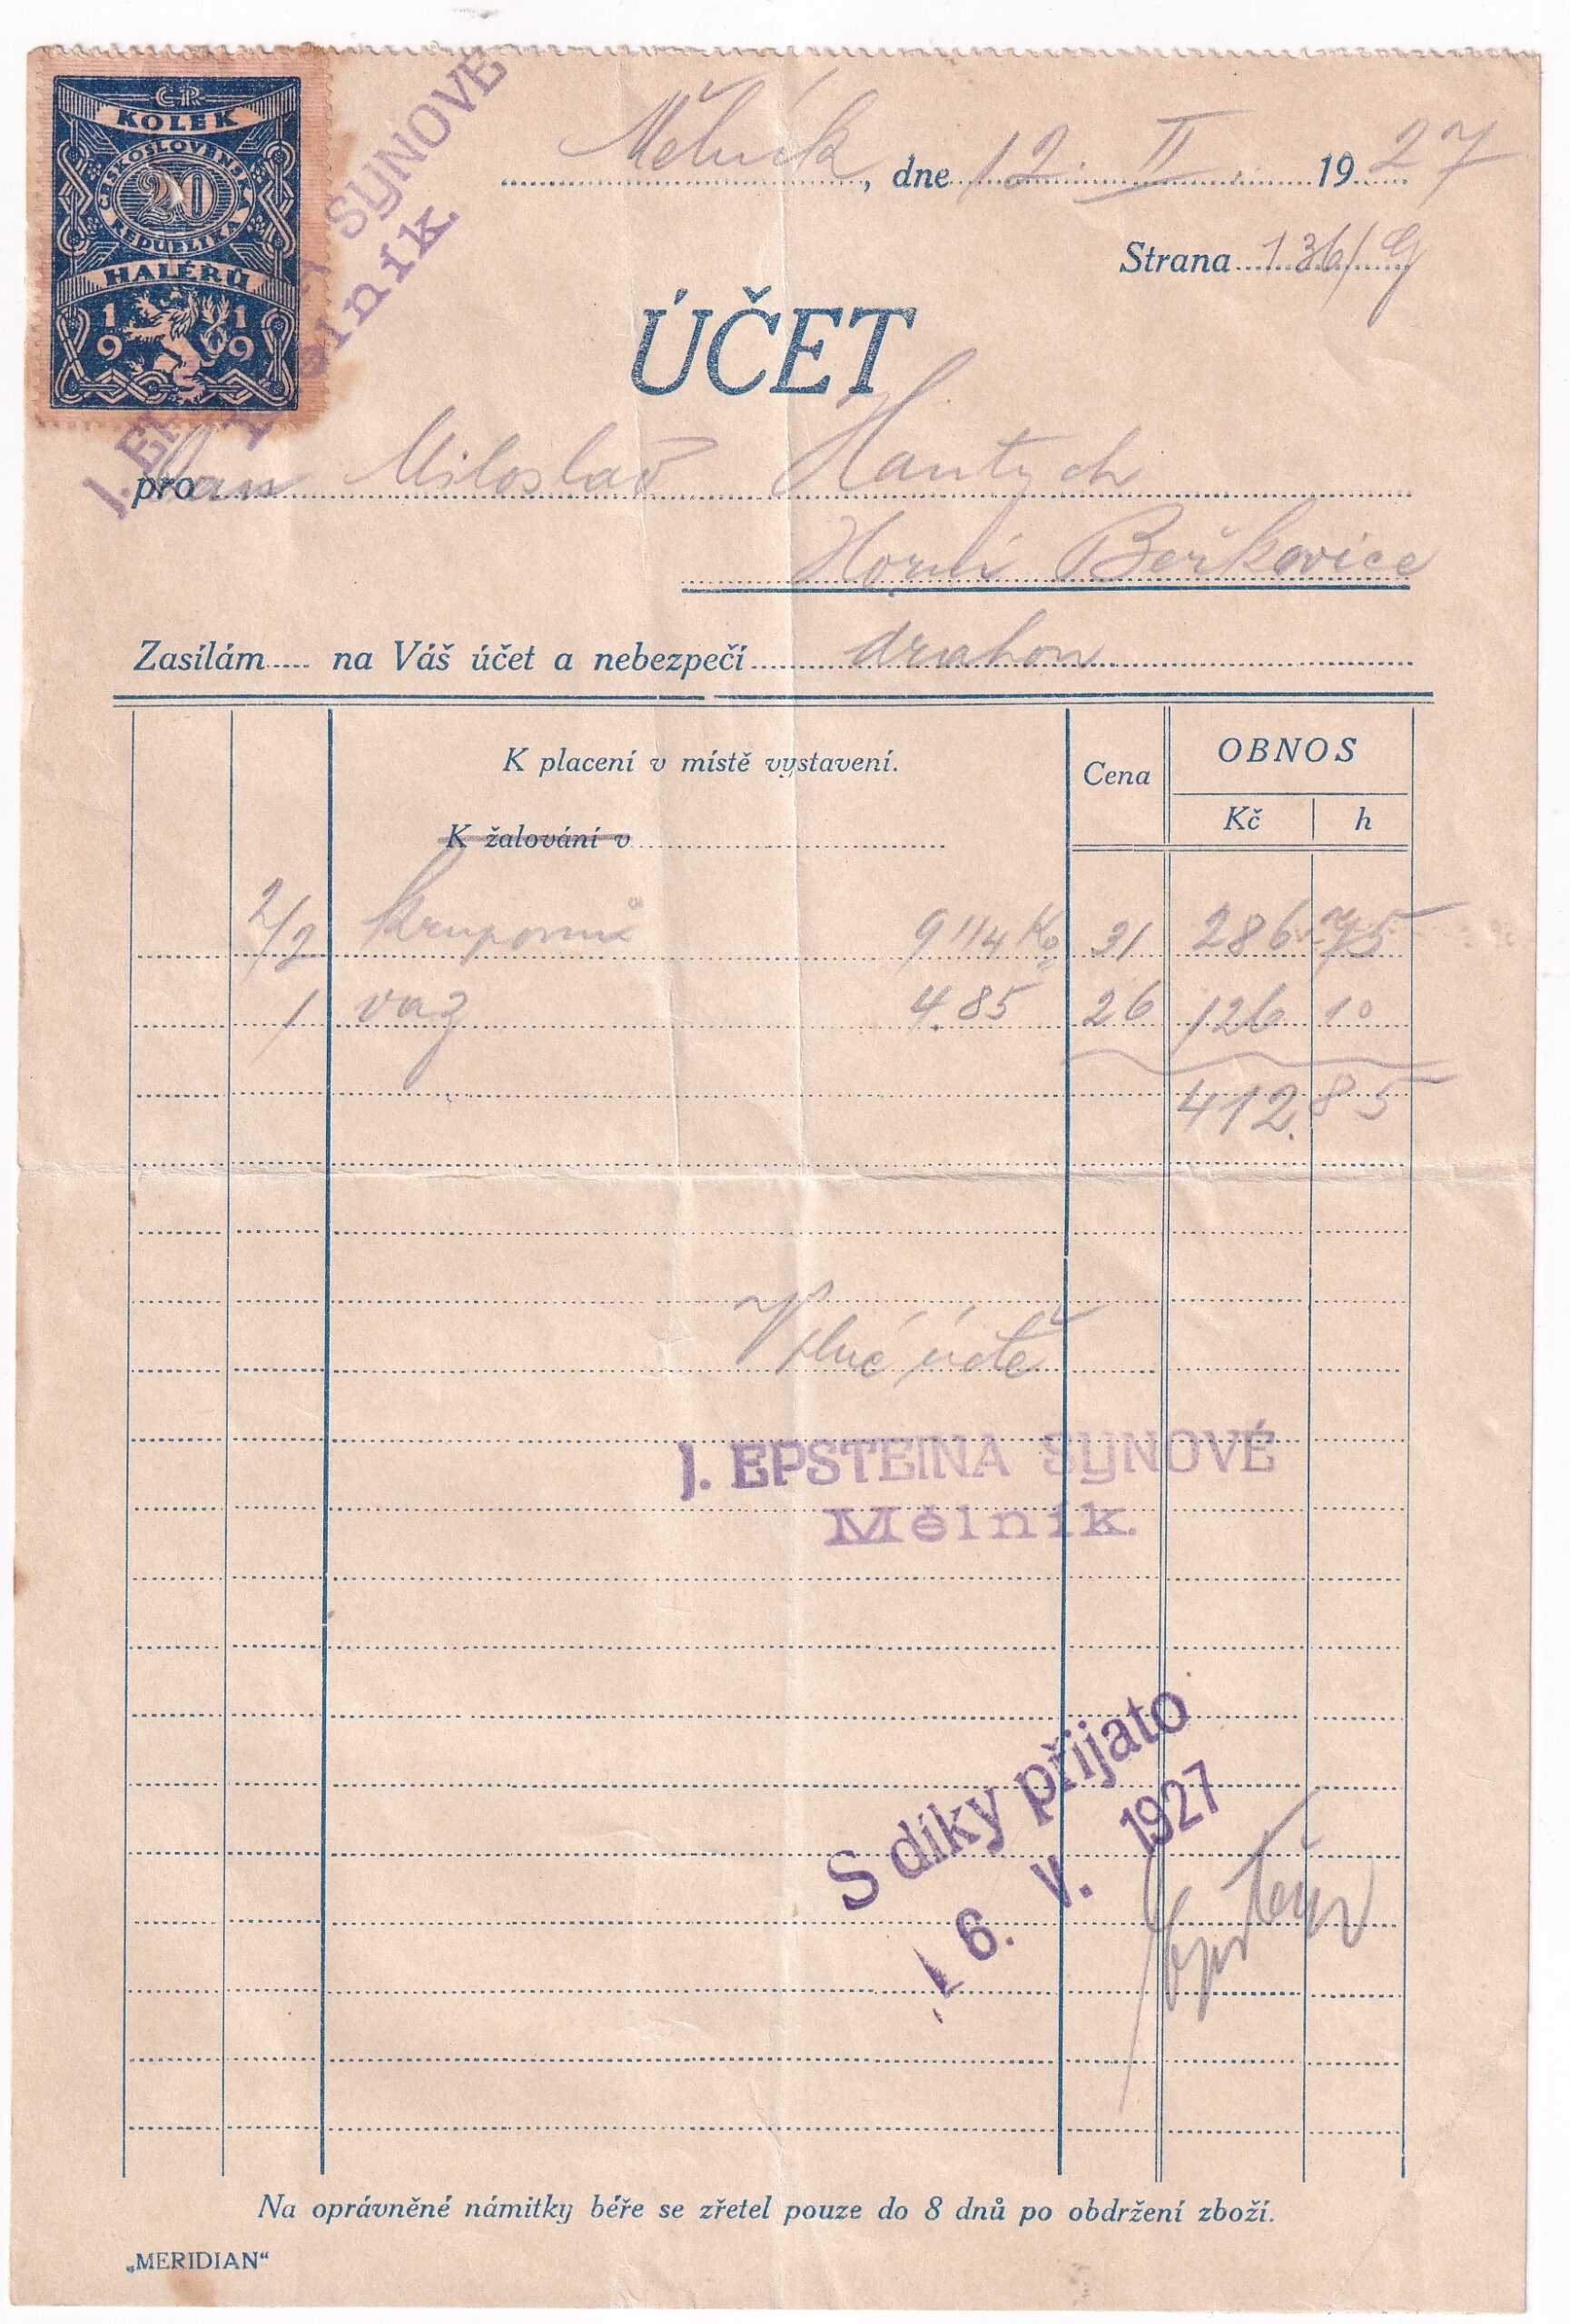 ČR
KOLEK
ČESKOSLOVENSKÁ
20
REPUBLIKA
HALÉRŮ
1919
SYNOVÉ
Mělník, dne 12. II. 1927
Strana 136/G
ÚČET
pro Pan Miloslav Hantych
Horní Beřkovice
Zasílám..... na Váš účet a nebezpečí drahou
K placení v místě vystavení. Cena OBNOS
Kč h
K žalování v
2/2 kruponů 9 1/4 Ko 31 286 75
1 vaz 4.85 26 126 10
412.85
V plné úctě
J. EPSTEINA SYNOVÉ
Mělník.
S díky přijato
6. V. 1927
Epstein
Na oprávněné námitky béře se zřetel pouze do 8 dnů po obdržení zboží.
„MERIDIAN“